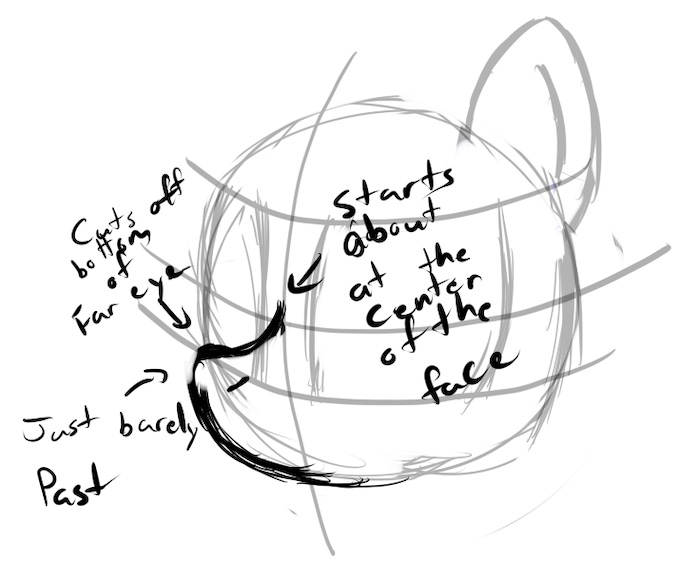 Cuts off
bottom
of
Far eye
Starts
about
at the
center
of the
face
Just barely
Past